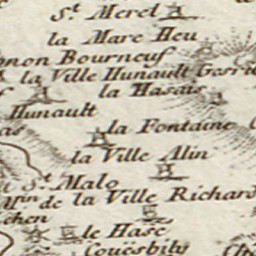 St. Merel
la Mare Heu
non Bourneuf
la Ville Hunault
la Hasais
Hunault
la Fontaine
la Ville Alin
St. Malo
Min de la Ville Richard
chen
le Hase
Couësbity